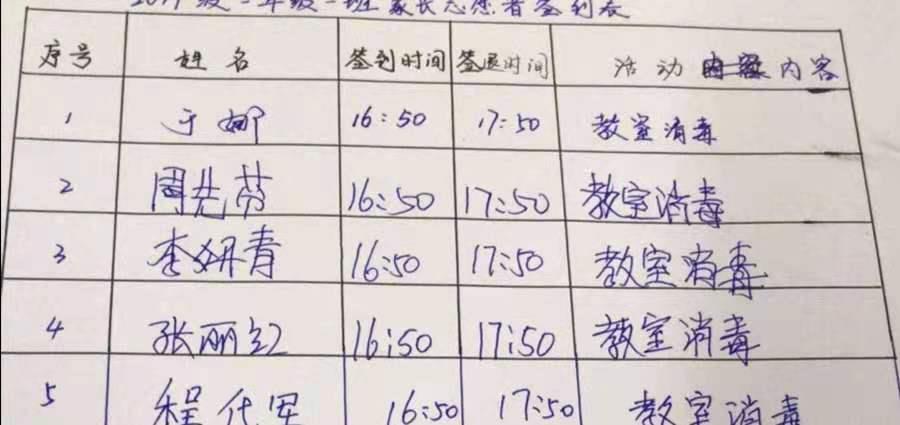 2019级一年级一班家长志愿者签到表
序号 姓名 签到时间 签退时间 活动内容
1 于娜 16:50 17:50 教室消毒
2 周先芬 16:50 17:50 教室消毒
3 李妍青 16:50 17:50 教室消毒
4 张丽红 16:50 17:50 教室消毒
5 程代军 16:50 17:50 教室消毒